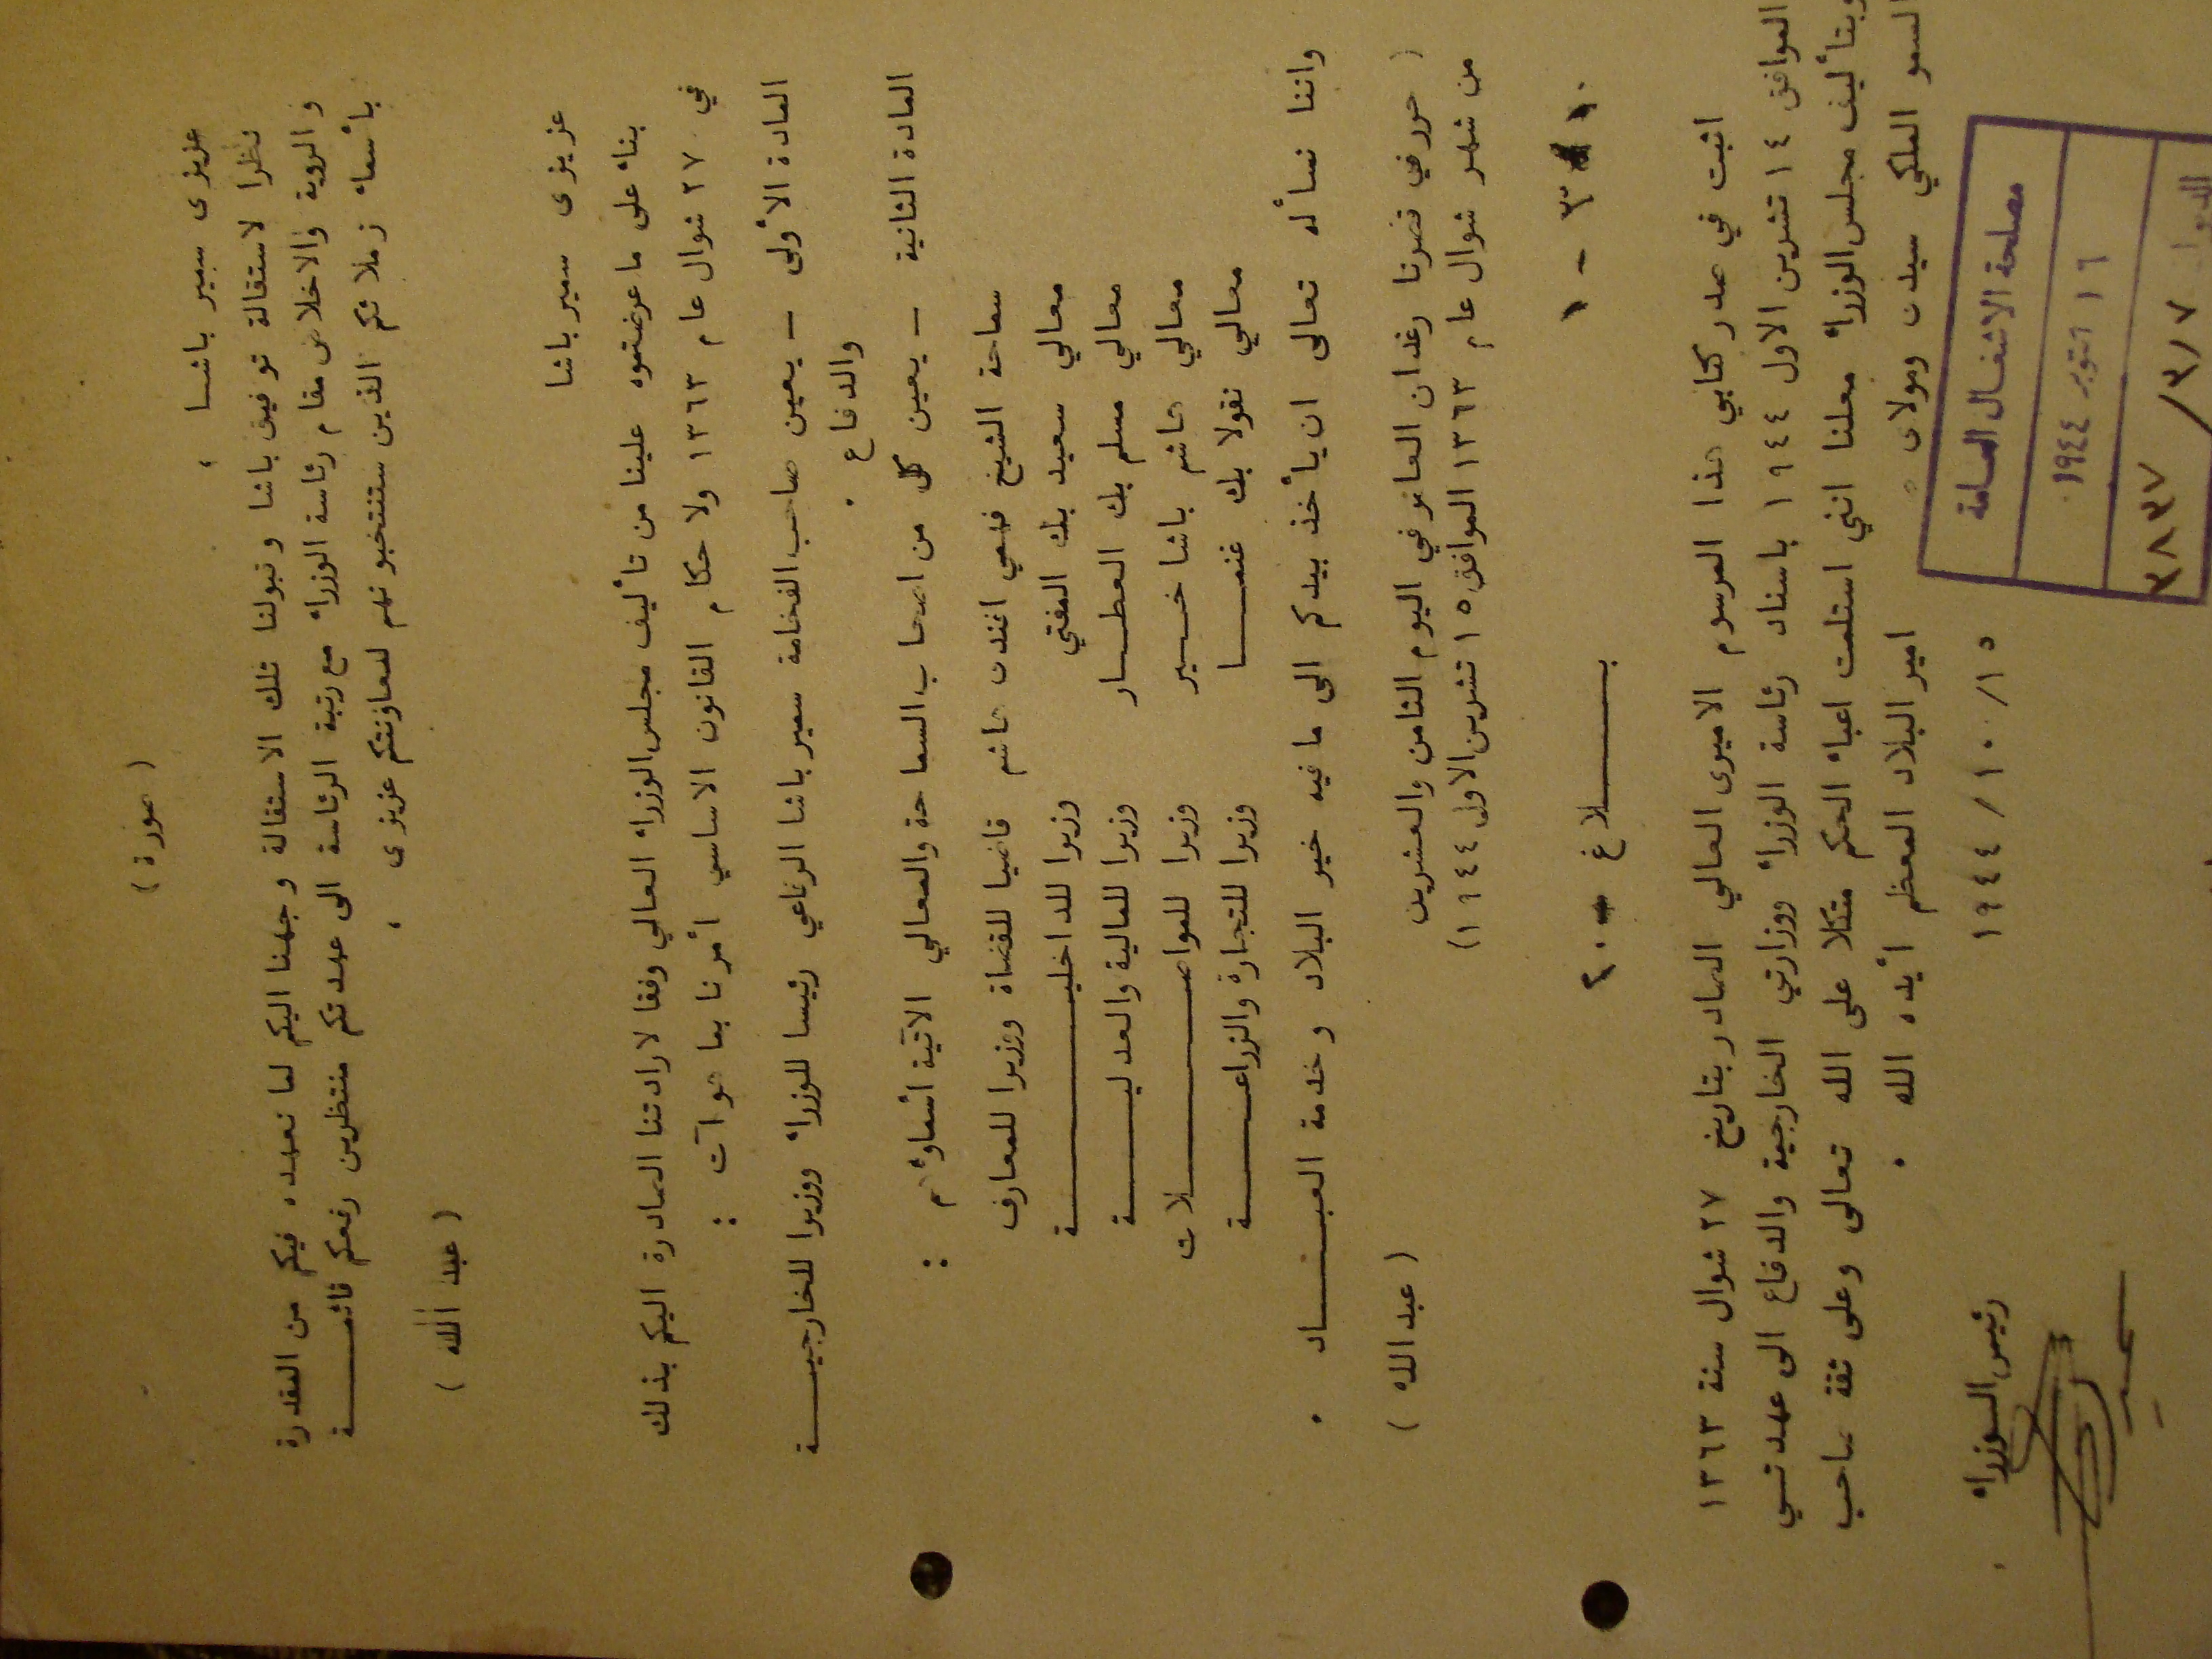 ( صورة )
عزيزى سمير باشـا ،
نظرا لاستقالة توفيق باشا وقبولنا تلك الاستقالة وجهنا اليكم لما نعهده فيكم من المقدرة
والروية والاخلاص مقام رئاسة الوزراء مع رتبة الرئاسة الى عهدتكم منتظرين رفعكم قائمـــة
بأسماء زملائكم الذين ستنتخبونهم لمعاونتكم عزيزى ،
( عبد الله )
عزيزى سمير باشا
بناء على ما عرضتموه علينا من تأليف مجلس الوزراء العالي وفقا لارادتنا الصادرة اليكم بذلك
في ٢٧ شوال عام ١٣٦٣ ولاحكام القانون الاساسي أمرنا بما هو آت :
المادة الأولى — يعين صاحب الفخامة سمير باشا الرفاعي رئيسا للوزراء ووزيرا للخارجيـــة
والدفاع .
المادة الثانية — يعين كل من اصحاب السماحة والمعالي الآتية أسماؤهم :
سماحة الشيخ فهمي افندى هاشم قاضيا للقضاة ووزيرا للمعارف
معالي سعيد بك المفتي وزيرا للداخليــــــة
معالي مسلم بك العطـــار وزيرا للمالية والعدليـــة
معالي هاشم باشا خـــير وزيرا للمواصـــــــلات
معالي نقولا بك غنمـــا وزيرا للتجارة والزراعـــة
واننا نسأله تعالى ان يأخذ بيدكم الى ما فيه خير البلاد وخدمة العبــــاد .
( حرر في قصرنا رغدان العامر في اليوم الثامن والعشرين
من شهر شوال عام ١٣٦٣ الموافق ١٥ تشرين الاول ١٩٤٤)
( عبد الله )
بـــــلاغ
اثبت في صدر كتابي هذا المرسوم الاميرى العالي الصادر بتاريخ ٢٧ شوال سنة ١٣٦٣
الموافق ١٤ تشرين الاول ١٩٤٤ باسناد رئاسة الوزراء ووزارتي الخارجية والدفاع الى عهدتـي
وبتأليف مجلس الوزراء معلنا انني استلمت اعباء الحكم متكلا على الله تعالى وعلى ثقة صاحب
السمو الملكي سيدى ومولاى امير البلاد المعظم أيده الله .
١٩٤٤/١٠/١٥
رئيس الـوزراء
سمير
مصلحة الاشغال العامة
١٦ اكتوبر ١٩٤٤
٣٨٣٧ /٣/٧